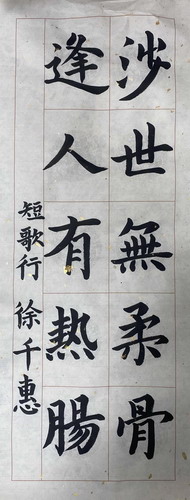 涉世無柔骨
逢人有熱腸
短歌行 徐千惠